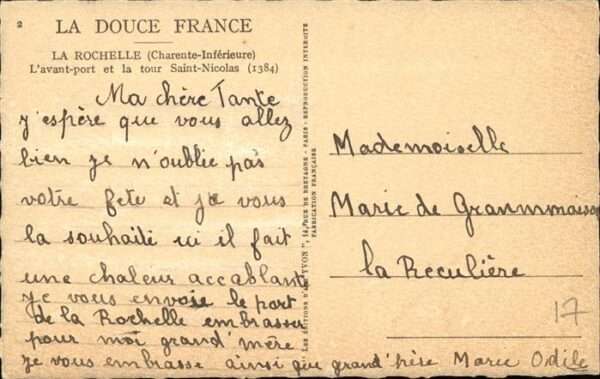 2
LA DOUCE FRANCE
LA ROCHELLE (Charente-Inférieure)
L'avant-port et la tour Saint-Nicolas (1384)
Ma chère Tante
j'espère que vous allez
bien je n'oublie pas
votre fete et je vous
la souhaite ici il fait
une chaleur accablant
je vous envoie le port
de la Rochelle embrasser
pour moi grand'mère
je vous embrasse ainsi que grand'père Marie Odile
LES ÉDITIONS D'ART "YVON", 15, RUE DE BRETAGNE - PARIS - REPRODUCTION INTERDITE
FABRICATION FRANÇAISE
Mademoiselle
Marie de Grammmaison
la Reculière
17